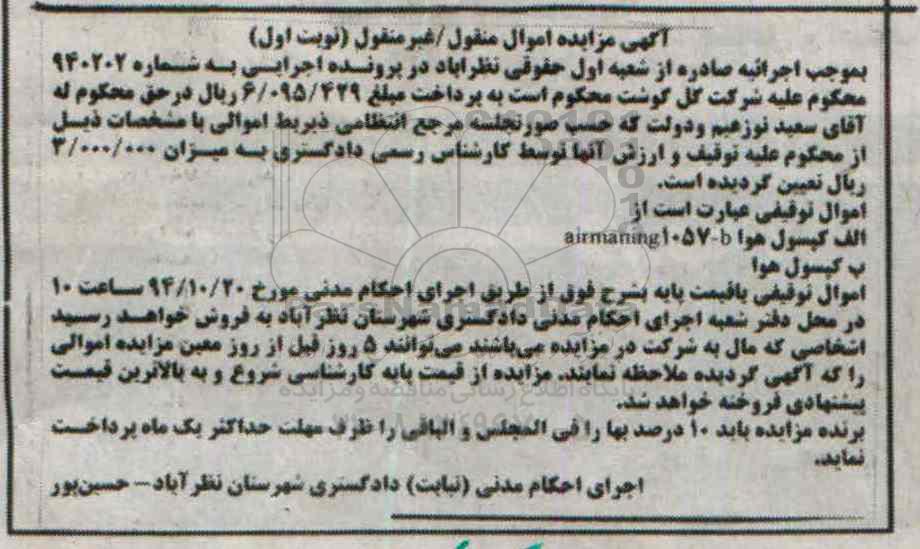 آگهی مزایده اموال منقول/غیرمنقول (نوبت اول)
بموجب اجرائیه صادره از شعبه اول حقوقی نظراباد در پرونده اجرایی به شماره ۹۴۰۲۰۲
محکوم علیه شرکت گل گوشت محکوم است به پرداخت مبلغ ۶/۰۹۵/۴۲۹ ریال درحق محکوم له
آقای سعید نوزعیم ودولت که حسب صورتجلسه مرجع انتظامی ذیربط اموالی با مشخصات ذیل
از محکوم علیه توقیف و ارزش آنها توسط کارشناس رسمی دادگستری به میزان ۳/۰۰۰/۰۰۰
ریال تعیین گردیده است.
اموال توقیفی عبارت است از
الف کپسول هوا airmaning۱۰۵۷-b
ب کپسول هوا
اموال توقیفی باقیمت پایه بشرح فوق از طریق اجرای احکام مدنی مورخ ۹۴/۱۰/۲۰ ساعت ۱۰
در محل دفتر شعبه اجرای احکام مدنی دادگستری شهرستان نظرآباد به فروش خواهد رسید
اشخاصی که مال به شرکت در مزایده می‌باشند می‌توانند ۵ روز قبل از روز معین مزایده اموالی
را که آگهی گردیده ملاحظه نمایند. مزایده از قیمت پایه کارشناسی شروع و به بالاترین قیمت
پیشنهادی فروخته خواهد شد.
پایگاه اطلاع رسانی مناقصه و مزایده
برنده مزایده باید ۱۰ درصد بها را فی المجلس و الباقی را ظرف مهلت حداکثر یک ماه پرداخت
نماید.
اجرای احکام مدنی (نیابت) دادگستری شهرستان نظرآباد – حسین‌پور